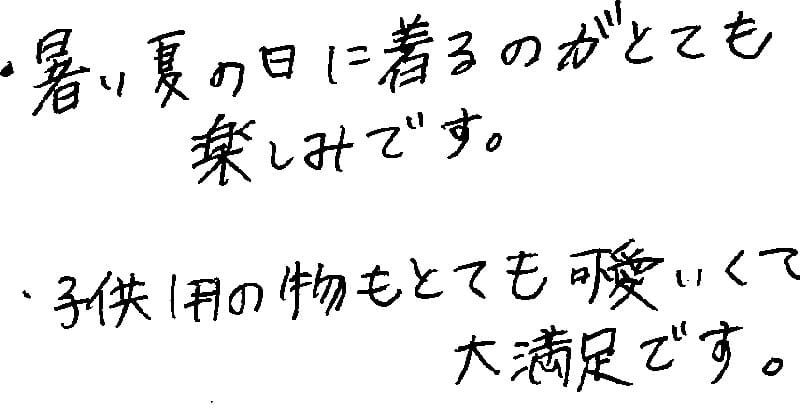 ・暑い夏の日に着るのがとても
楽しみです。
・子供用の物もとても可愛いくて
大満足です。